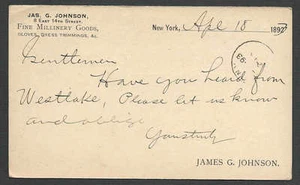 JAS. G. JOHNSON,
8 East 14th Street,
Fine Millinery Goods,
GLOVES, DRESS TRIMMINGS, &c.
New York, Apl 18 1892
Gentlemen
Have you heard from
Westlake, Please let us know
and oblige
Yours truly
JAMES G. JOHNSON.